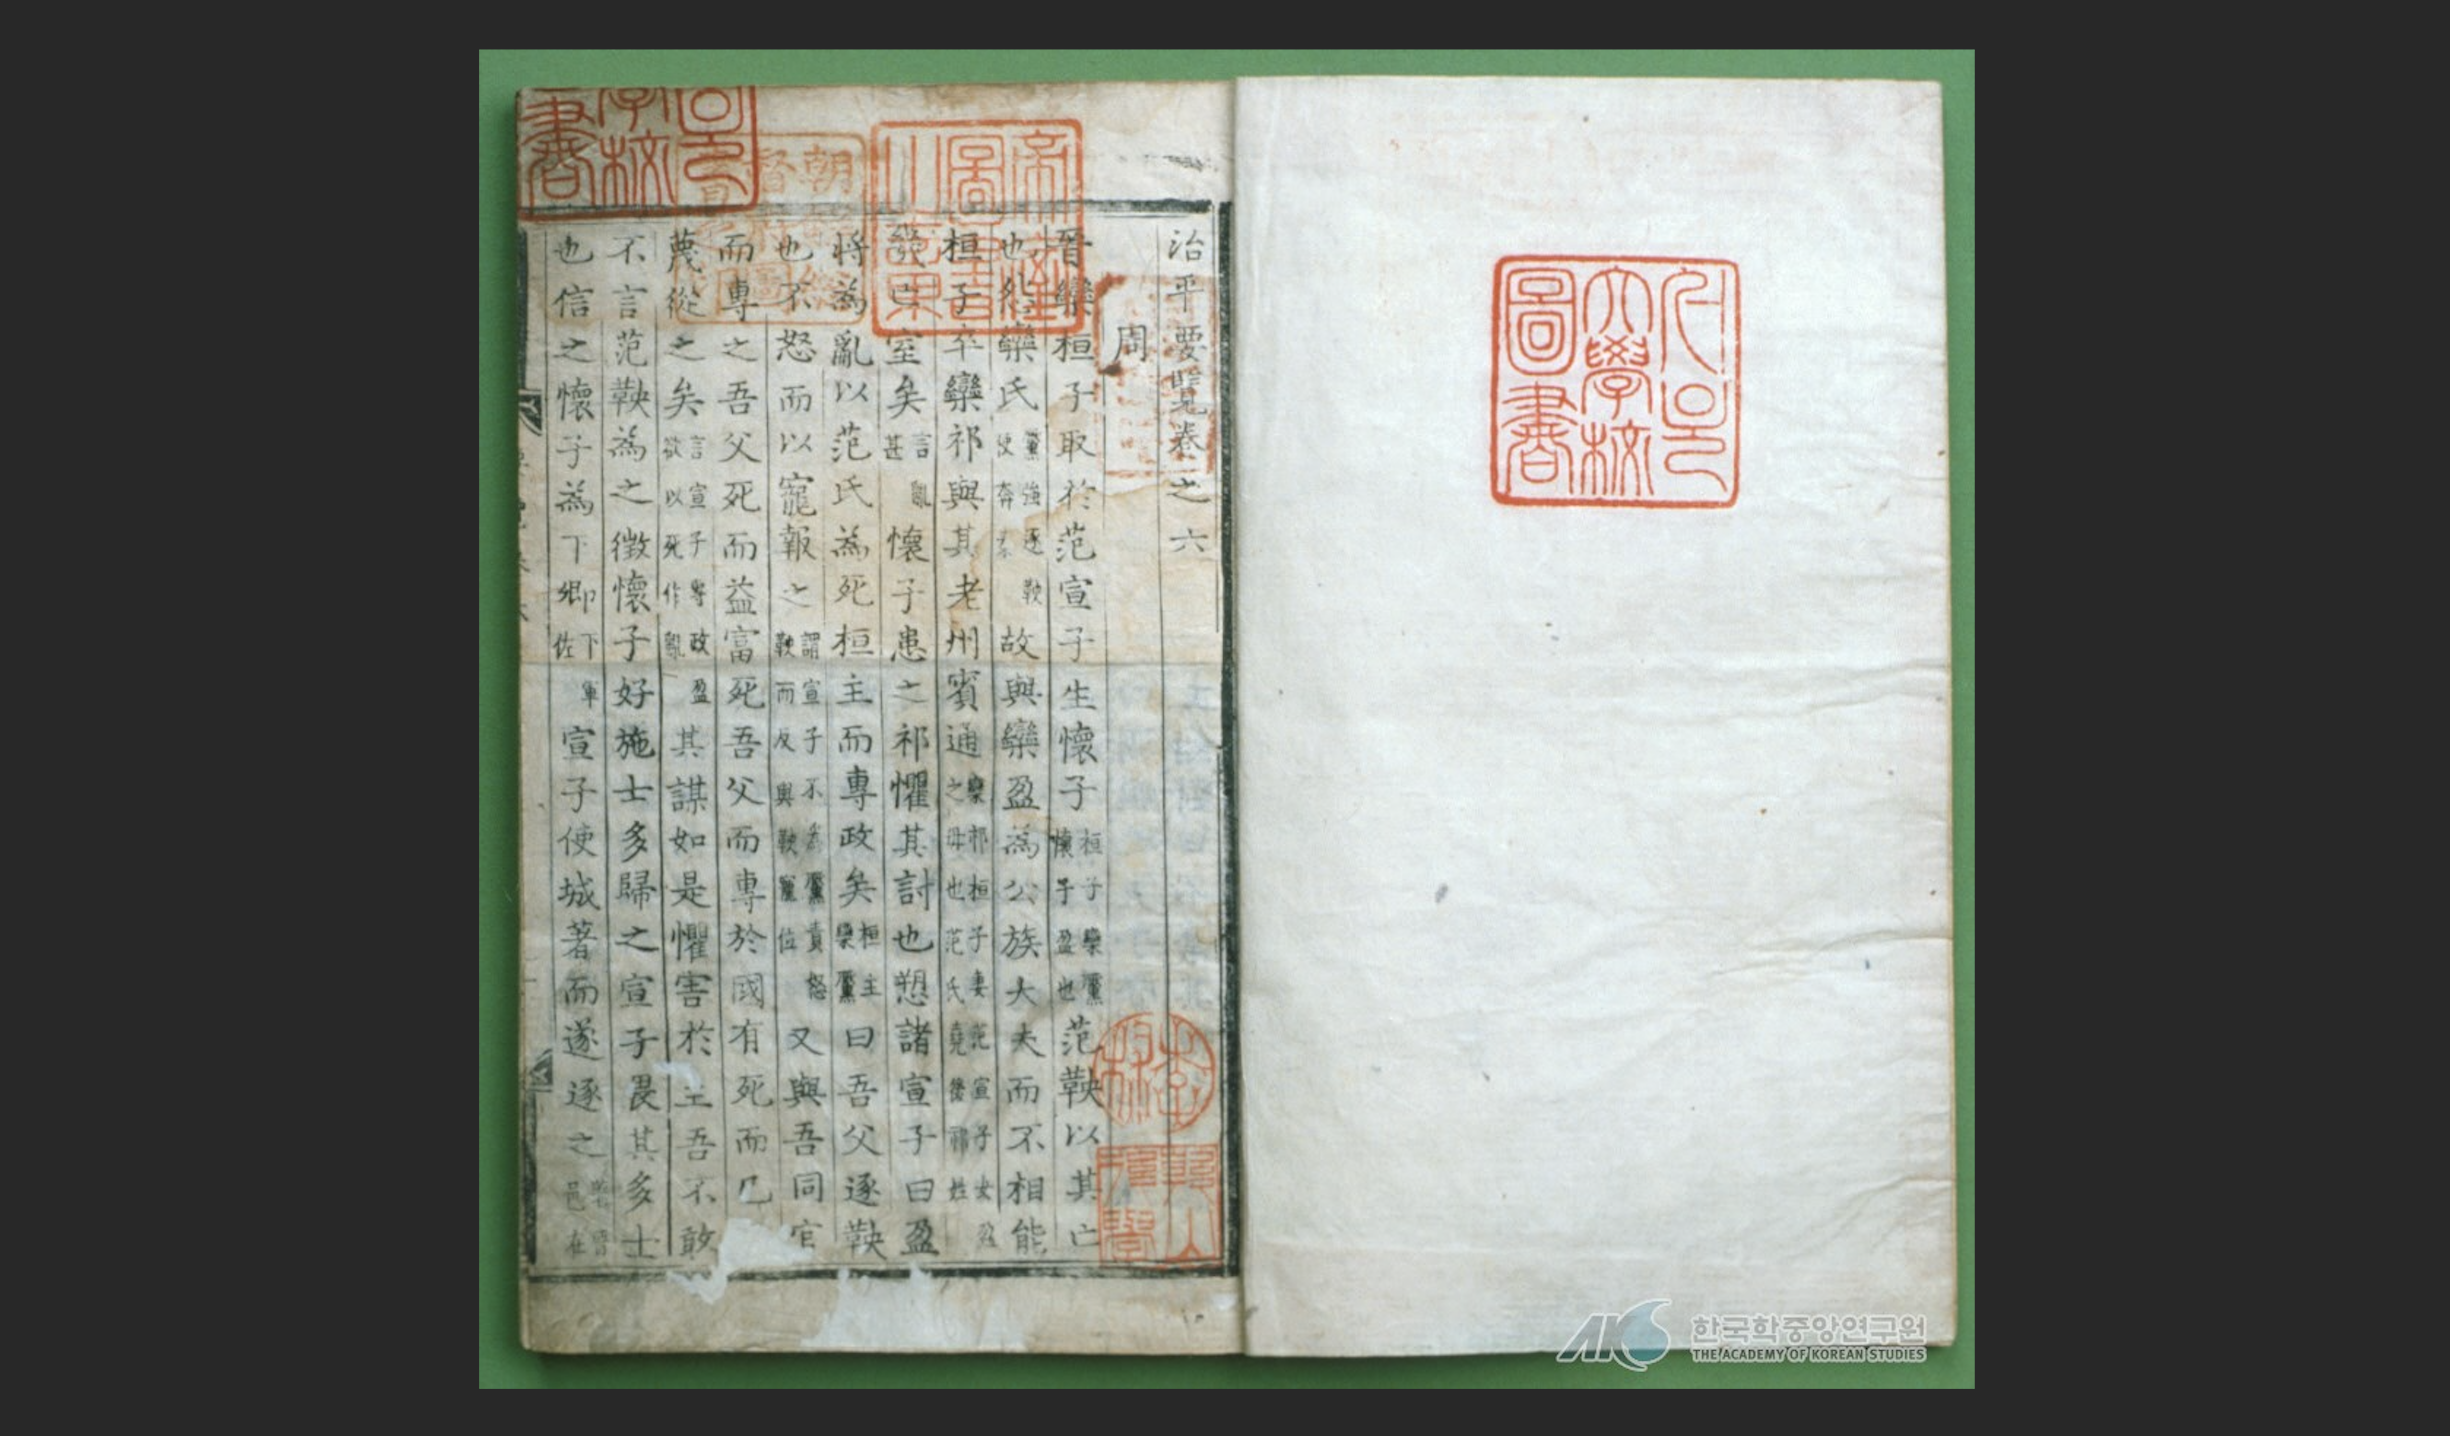 서울大學校圖書
帝室圖書之章
治平要覽卷之六
周
晉欒桓子取於范宣子生懷子桓子欒黶懷子盈也范鞅以其亡
也怨欒氏黶強逐鞅使奔秦故與欒盈為公族大夫而不相能
桓子卒欒祁與其老州賓通欒祁桓子妻范宣子女盈之母也范氏堯後祁姓
幾亡室矣言亂甚懷子患之祁懼其討也愬諸宣子曰盈
將為亂以范氏為死桓主而專政矣桓主欒黶曰吾父逐鞅
也不怒而以寵報之謂宣子不為黶責怒鞅而反與鞅寵位又與吾同官
而專之吾父死而益富死吾父而專於國有死而已
蔑從之矣言宣子專政盈欲以死作亂其謀如是懼害於主吾不敢
不言范鞅為之徵懷子好施士多歸之宣子畏其多士
也信之懷子為下卿下軍佐宣子使城著而遂逐之著晉邑在
한국학중앙연구원
THE ACADEMY OF KOREAN STUDIES